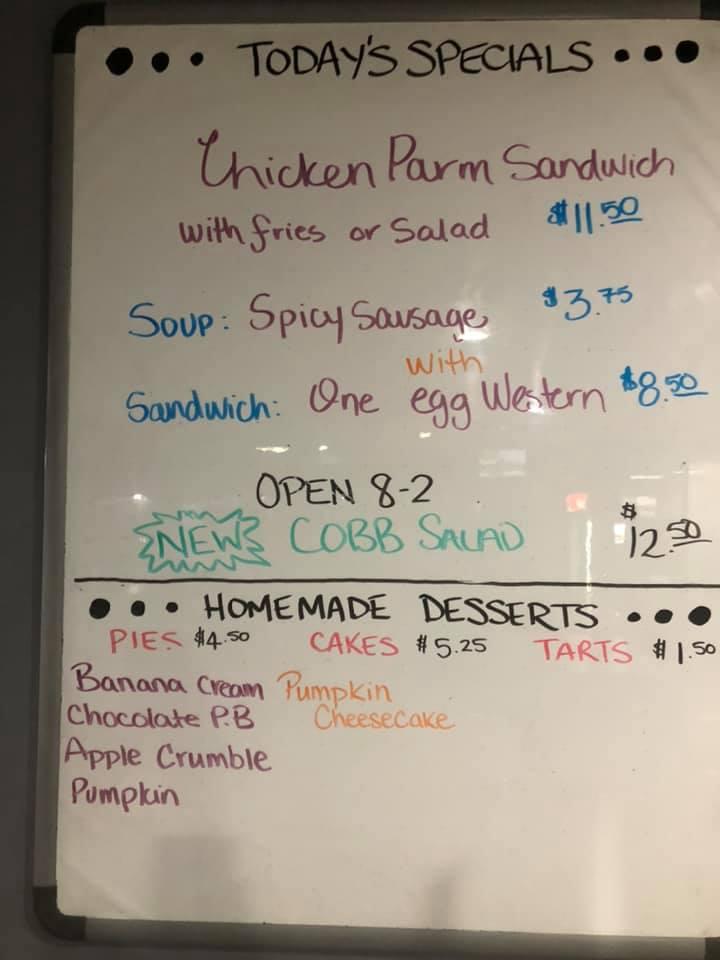 TODAY'S SPECIALS
Chicken Parm Sandwich
with fries or Salad $11.50
Soup: Spicy Sausage $3.75
with
Sandwich: One egg Western $8.50
OPEN 8-2
NEW COBB SALAD $12.50
HOMEMADE DESSERTS
PIES $4.50 CAKES $5.25 TARTS $1.50
Banana Cream Pumpkin
Chocolate P.B Cheesecake
Apple Crumble
Pumpkin